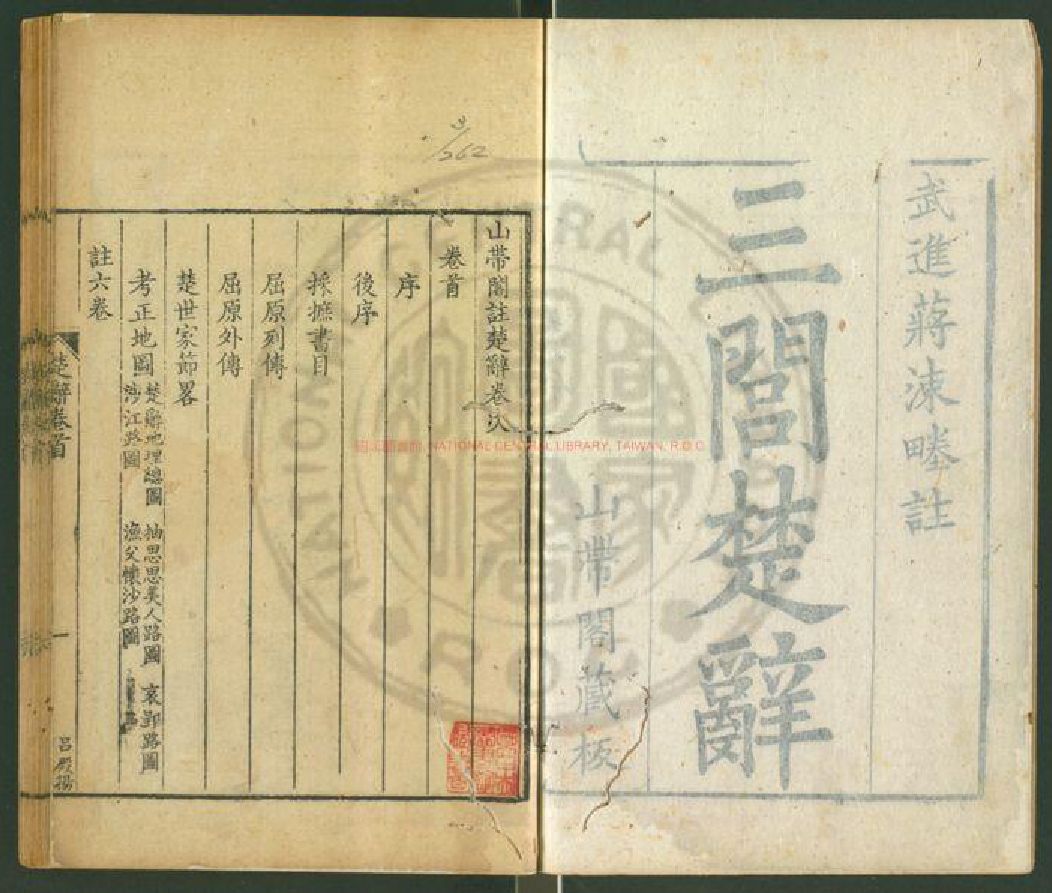 武進蔣涑畻註
三閭楚辭
山帶閣藏板
山帶閣註楚辭卷次
卷首
序
後序
採摭書目
屈原列傳
屈原外傳
楚世家節畧
考正地圖
楚辭地理總圖 抽思思美人路圖 哀郢路圖
涉江路圖 漁父懷沙路圖
註六卷
楚辭卷首
一
呂殿揚
262
國家圖書館, NATIONAL CENTRAL LIBRARY, TAIWAN, R.O.C.
NATIONAL CENTRAL LIBRARY
ROC